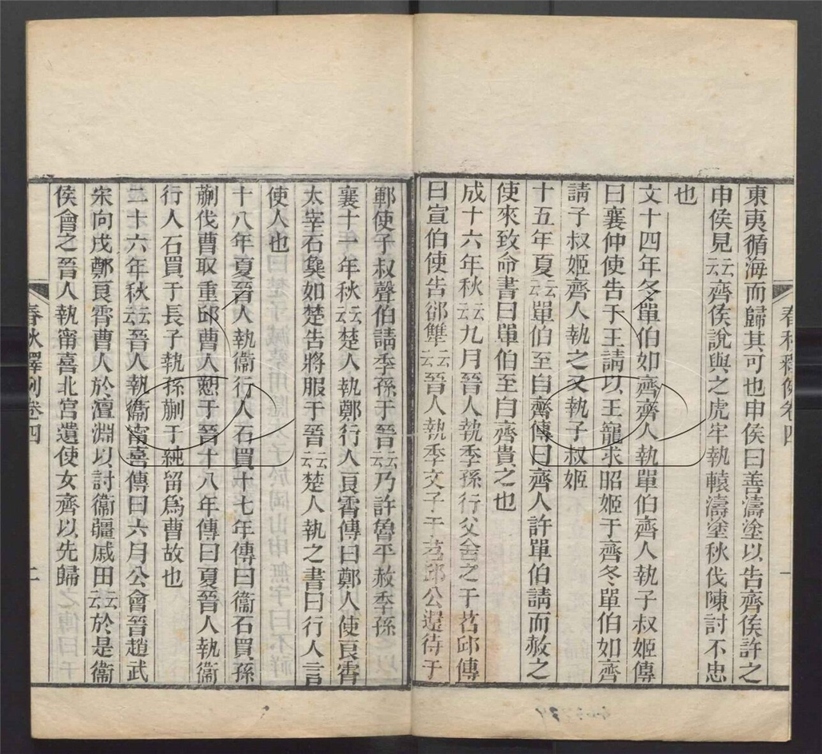 東夷循海而歸其可也申侯曰善濤塗以告齊侯許之
申侯見云云齊侯說與之虎牢執轅濤塗秋伐陳討不忠
也
文十四年冬單伯如齊齊人執單伯齊人執子叔姬傳
曰襄仲使告于王請以王寵求昭姬于齊冬單伯如齊
請子叔姬齊人執之又執子叔姬
十五年夏云云單伯至自齊傳曰齊人許單伯請而赦之
使來致命書曰單伯至自齊貴之也
成十六年秋云云九月晉人執季孫行父舍之于苕邱傳
曰宣伯使告郤犨云云晉人執季文子于苕邱公還待于
鄆使子叔聲伯請季孫于晉云云乃許魯平赦季孫
襄十一年秋云云楚人執鄭行人良霄傳曰鄭人使良霄
太宰石㚟如楚告將服于晉云云楚人執之書曰行人言
使人也
十八年夏晉人執衞行人石買十七年傳曰衞石買孫
蒯伐曹取重邱曹人愬于晉十八年傳曰夏晉人執衞
行人石買于長子執孫蒯于純留爲曹故也
二十六年秋云云晉人執衞甯喜傳曰六月公會晉趙武
宋向戌鄭良霄曹人於澶淵以討衞疆戚田云云於是衞
侯會之晉人執甯喜北宮遺使女齊以先歸
春秋釋例卷四
二
春秋釋例卷四
一